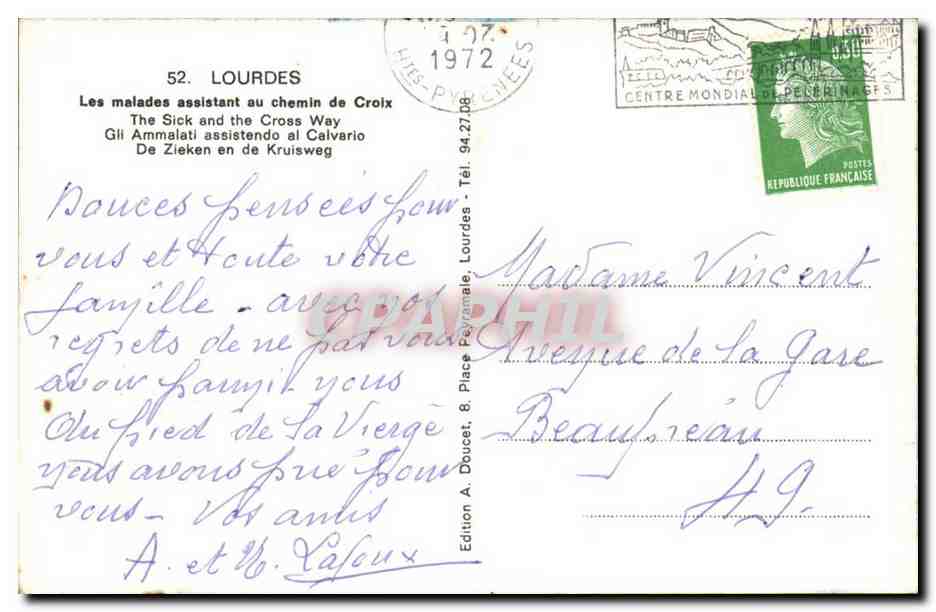 52. LOURDES
Les malades assistant au chemin de Croix
The Sick and the Cross Way
Gli Ammalati assistendo al Calvario
De Zieken en de Kruisweg
Douces pensées pour
vous et toute votre
famille - avec nos
regrets de ne pas vous
avoir parmi nous
Au pied de la Vierge
nous avons prié pour
vous - Vos amis
A. et
Edition A. Doucet, 8. Place Peyramale, Lourdes - Tél. 94.27.08
1972
HTES-PYRENEES
CENTRE MONDIAL DE PELERINAGES
0.30
POSTES
REPUBLIQUE FRANÇAISE
Madame Vincent
Avenue de la Gare
Beaupréau
49.
CPAPHIL